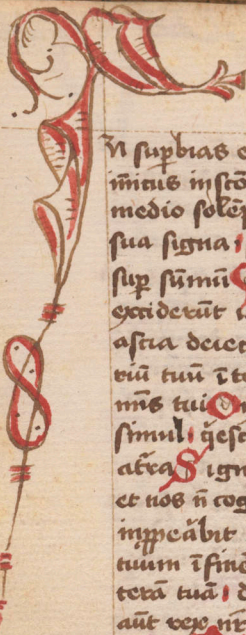 n sup̲bias e
imicus in sc̄o
medio solēp
sua signa
sup̲ sūmū
exciderūt
ascia deiec
riū tuū ī te
nīs tui O
simul q̄esc
at̄ra Sign
et nos n̄ cog
inpp̲eābit
tuum ī fine
terā tuā d
aūt rex nr̄